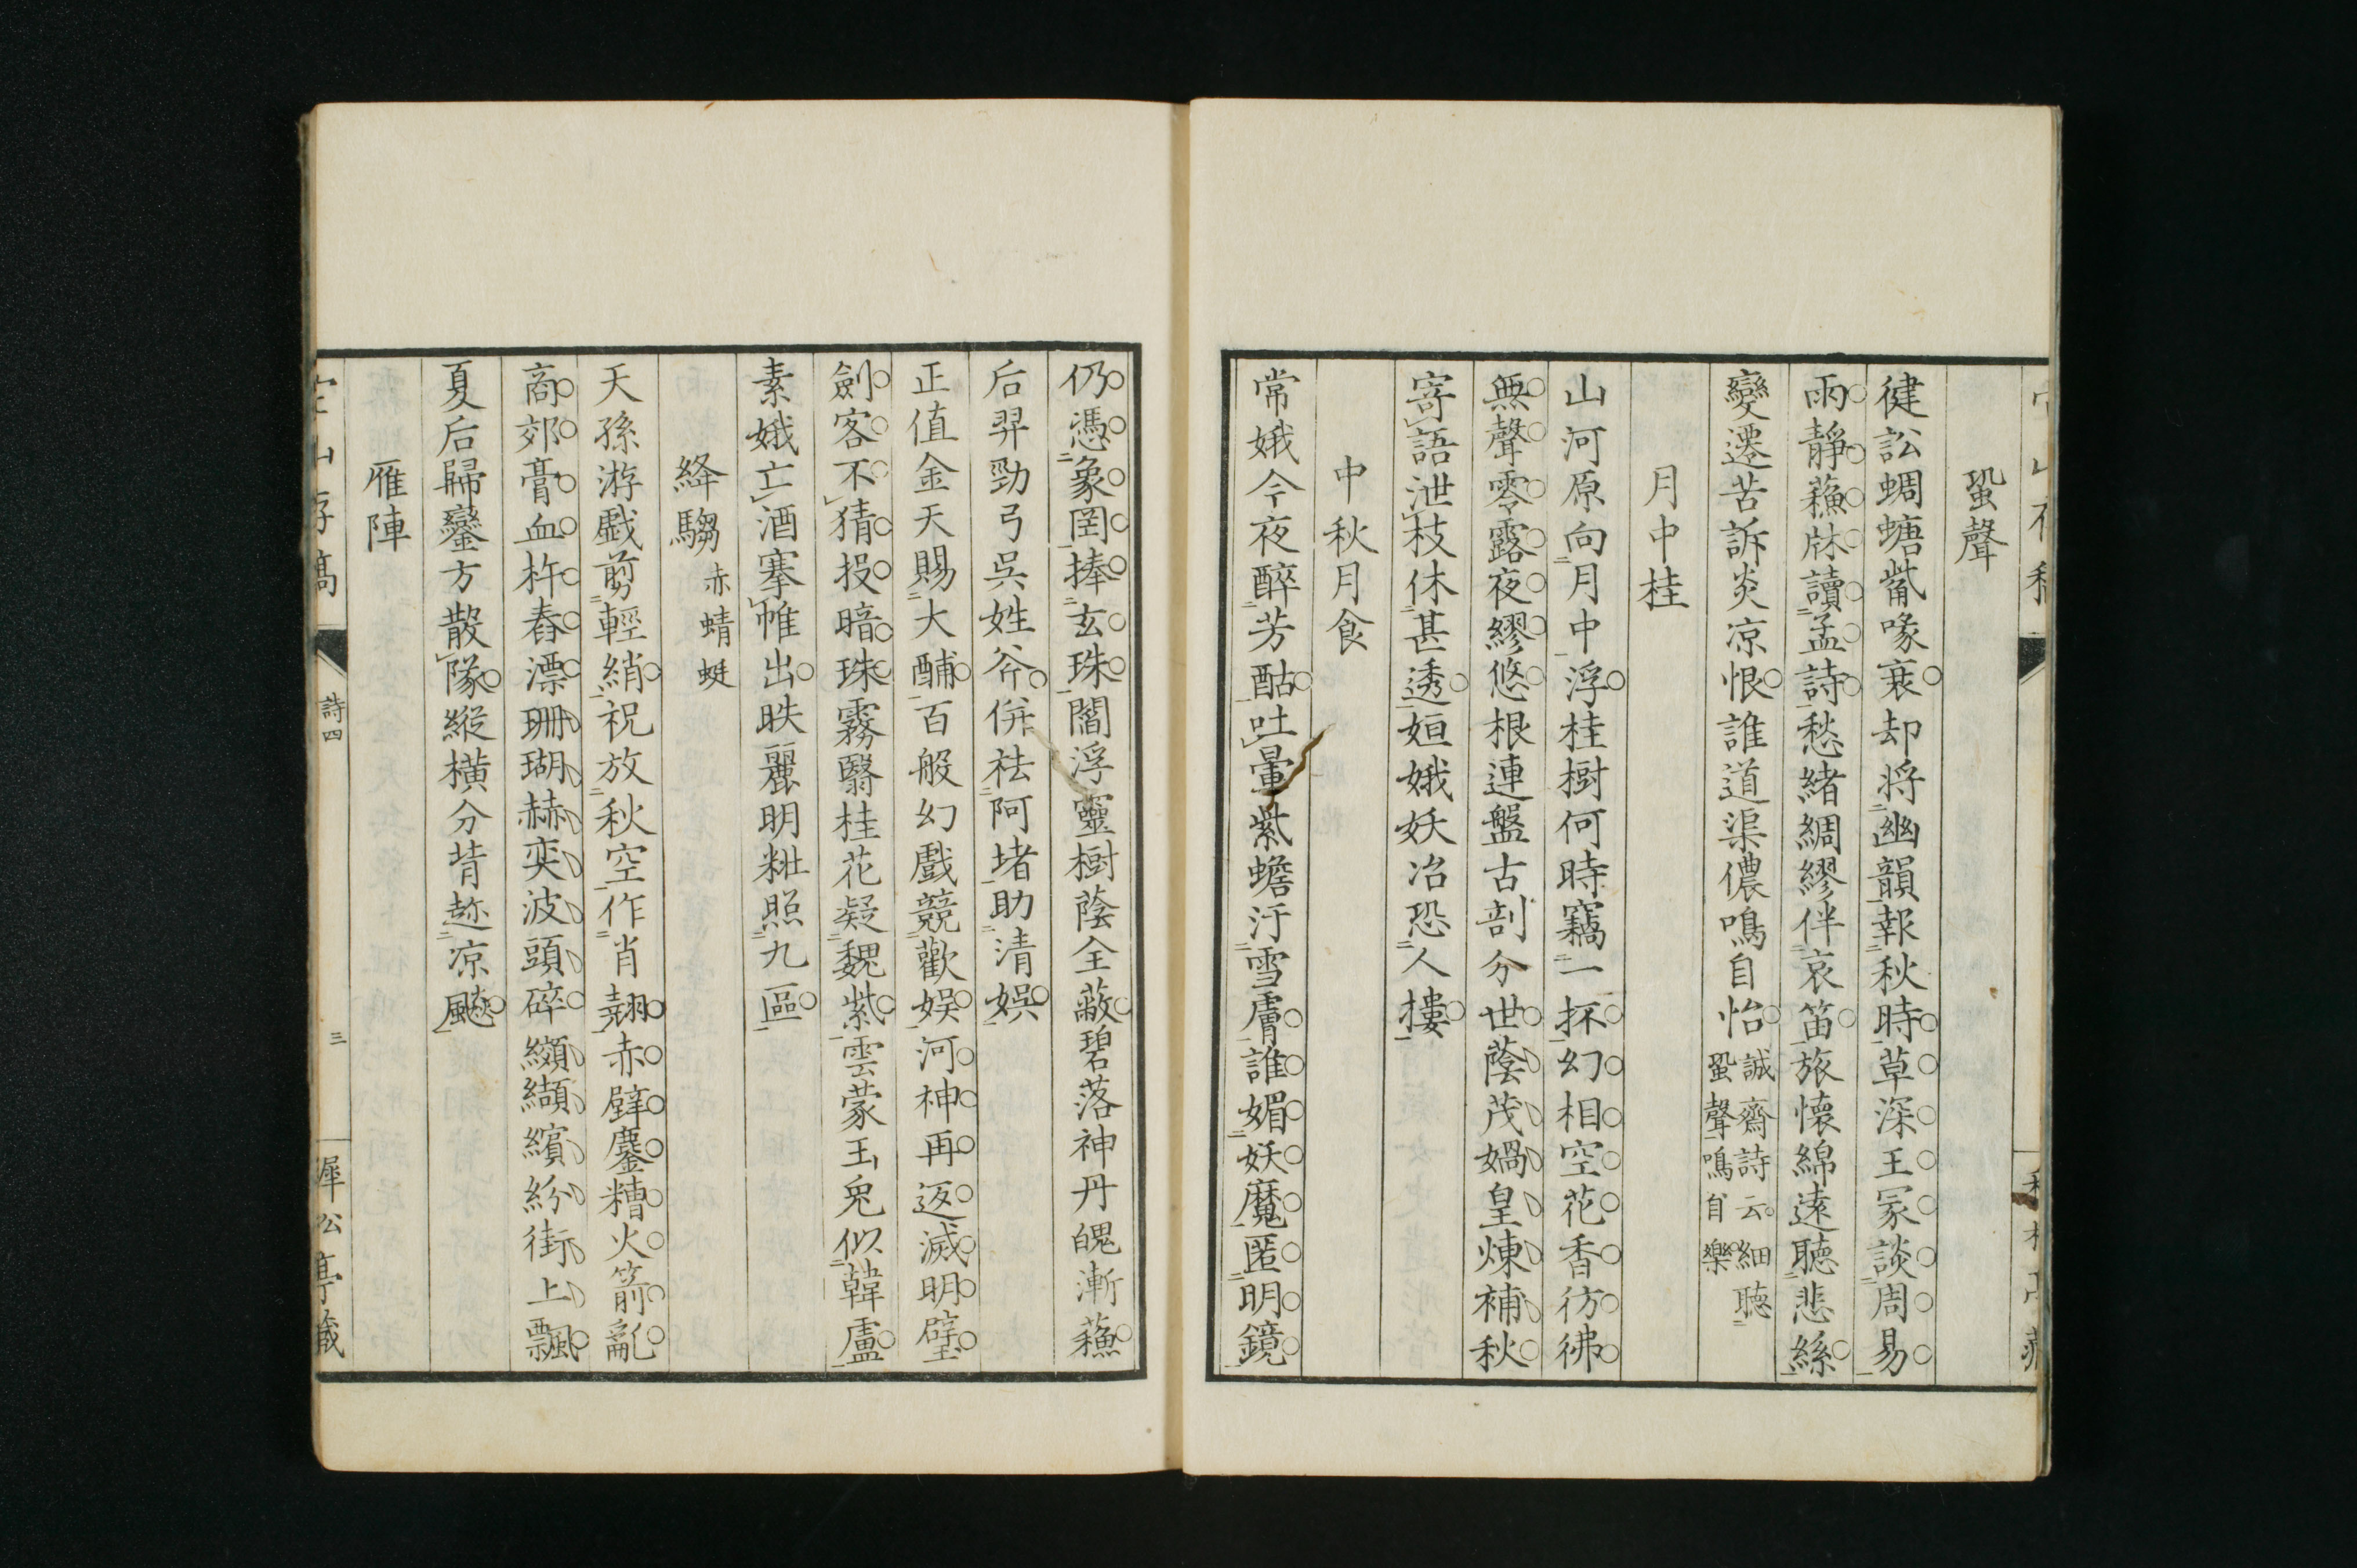 蛩聲
健訟蜩螗觜喙衰却将幽韻報秋時草深王冢談周易
雨靜蘓牀讀孟詩愁緒綢繆伴哀笛旅懷綿遠聽悲絲
變遷苦訴炎凉恨誰道渠儂鳴自怡
誠齋詩云細聽
蛩聲鳴自樂
月中桂
山河原向月中浮桂樹何時竊一抔幻相空花香彷彿
無聲零露夜繆悠根連盤古剖分世蔭茂媧皇煉補秋
寄語泄枝休甚透姮娥妖冶恐人摟
中秋月食
常娥今夜醉芳酤吐暈紫蟾汙雪膚誰媚妖魔匿明鏡
仍憑象罔捧玄珠閻浮靈樹蔭全蔽碧落神丹魄漸蘓
后羿勁弓吳姓斧併祛阿堵助清娯
正值金天賜大酺百般幻戲競歡娯河神再返滅明璧
劍客不猜投暗珠霧翳桂花疑魏紫雲蒙玉兎似韓盧
素娥亡酒搴帷出昳麗明粧照九區
絳騶 赤蜻蜓
天孫游戯剪輕綃祝放秋空作肖翹赤壁鏖糟火箭亂
商郊膏血杵舂漂珊瑚赫奕波頭碎纐纈繽紛街上飄
夏后歸鑾方散隊縱橫分背趂凉飈
雁陣
詩四
三
犀公亭藏